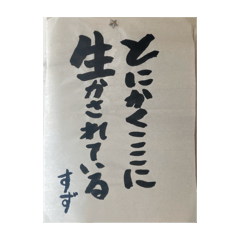 とにかくここに
生かされている
すず